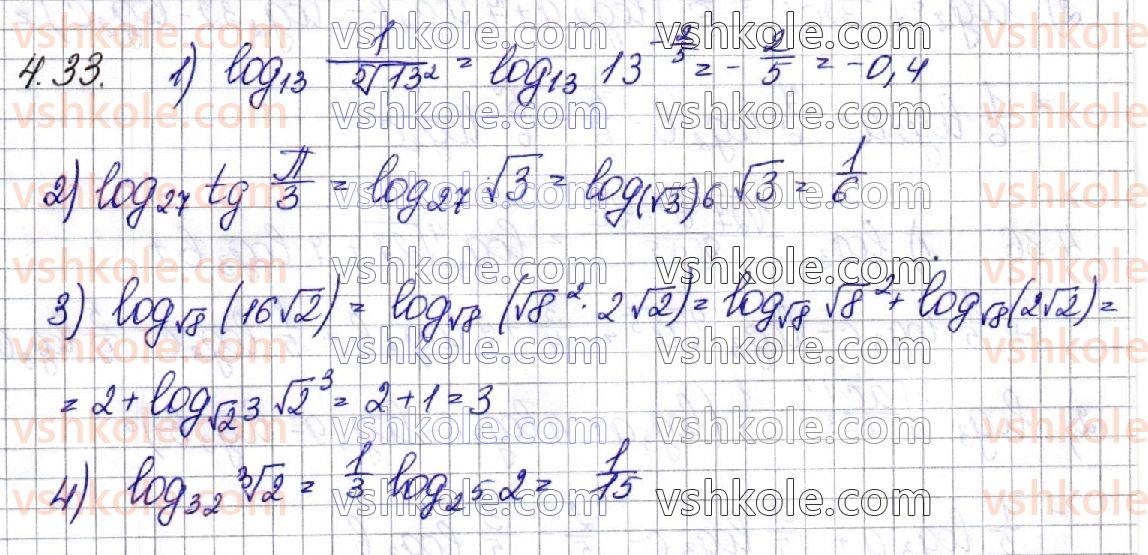 4.33. 1) log₁₃ 1/⁵√13² = log₁₃ 13^(-2/5) = -2/5 = -0,4
2) log₂₇ tg π/3 = log₂₇ √3 = log_(√3)6 √3 = 1/6
3) log_√8 (16√2) = log_√8 (√8² · 2√2) = log_√8 √8² + log_√8 (2√2) =
= 2 + log_√2³ √2³ = 2 + 1 = 3
4) log₃₂ ³√2 = 1/3 log_2⁵ 2 = 1/15
vshkole.com